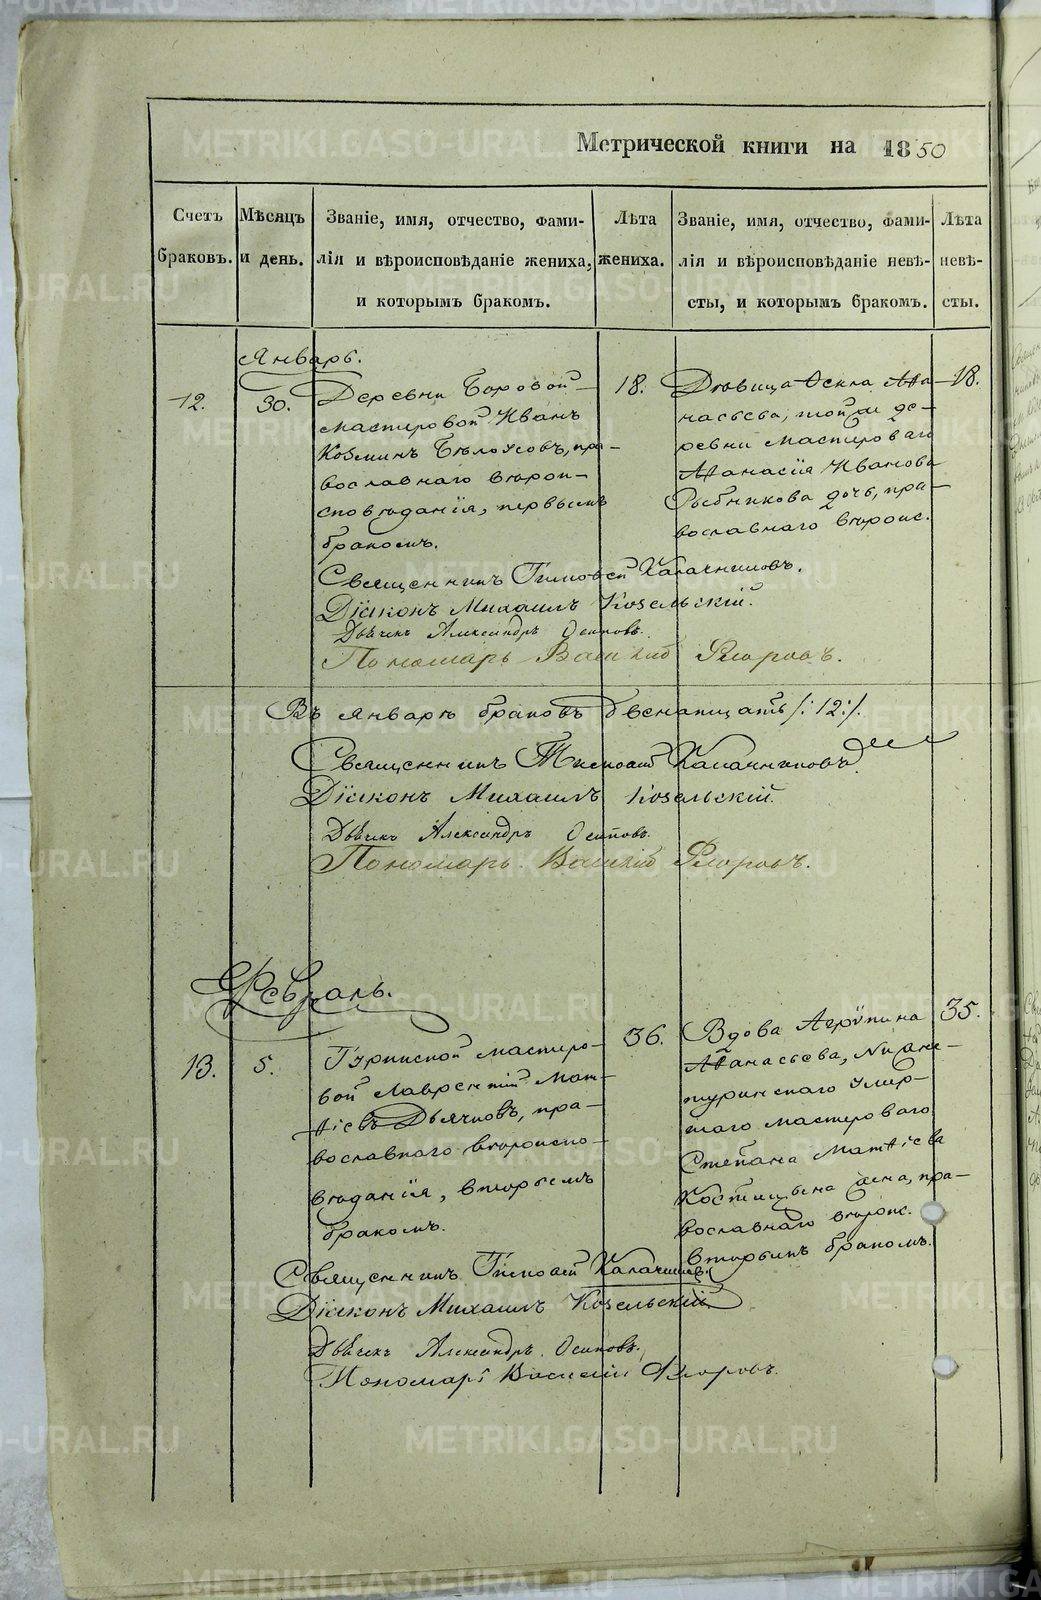 Метрической книги на 1850
Счетъ браковъ.
Мѣсяцъ и день.
Званіе, имя, отчество, фами-
лія и вѣроисповѣданіе жениха,
и которымъ бракомъ.
Лѣта
жениха.
Званіе, имя, отчество, фами-
лія и вѣроисповѣданіе невѣ-
сты, и которымъ бракомъ.
Лѣта
невѣ-
сты.
Январь.
12.
30.
Деревни Боровой
мастеровой Иванъ
Козминъ Бѣлоусовъ, пра-
вославнаго вѣрои-
сповѣданія, первымъ
бракомъ.
18.
Дѣвица Ѳекла Аѳа-
насьева, той же де-
ревни мастероваго
Аѳанасія Иванова
Рыбникова дочь, пра-
вославнаго вѣроис.
18.
Священникъ Тимоѳей Калачниковъ.
Діаконъ Михаилъ Козельскій.
Дьячекъ Александръ Осиповъ.
Пономарь Василій Флоровъ.
Въ январѣ браковъ двенатцать /:12:/.
Священникъ Тимоѳей Калачниковъ.
Діаконъ Михаилъ Козельскій.
Дьячекъ Александръ Осиповъ.
Пономарь Василій Флоровъ.
Февраль.
13.
5.
Туринской мастеро-
вой Лаврентій Мат-
ѳіевъ Дьячковъ, пра-
вославнаго вѣроиспо-
вѣданія, вторымъ
бракомъ.
36.
Вдова Агрипина
Аѳанасьева, Нижне-
туринскаго умер-
шаго мастероваго
Степана Матѳіева
Костицына жена, пра-
вославнаго вѣроис.
вторымъ бракомъ.
35.
Священникъ Тимоѳей Калачниковъ
Діаконъ Михаилъ Козельскій
Дьячекъ Александръ Осиповъ.
Пономарь Василій Флоровъ.
METRIKI.GASO-URAL.RU